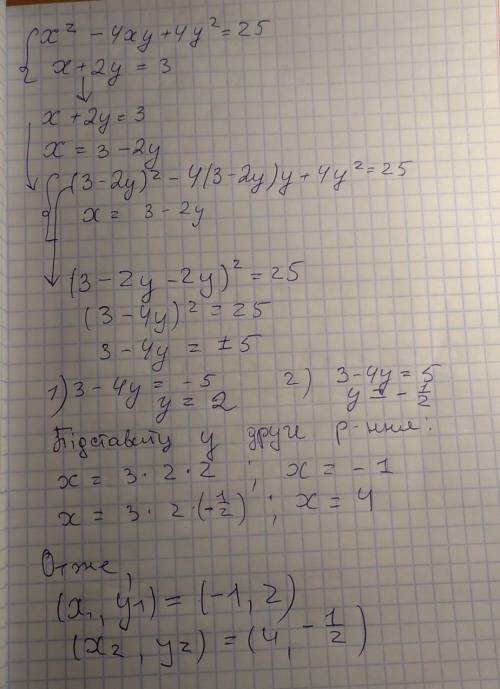 x² - 4xy + 4y² = 25
x + 2y = 3
x + 2y = 3
x = 3 - 2y
(3 - 2y)² - 4(3 - 2y)y + 4y² = 25
x = 3 - 2y
(3 - 2y - 2y)² = 25
(3 - 4y)² = 25
3 - 4y = ±5
1) 3 - 4y = -5 2) 3 - 4y = 5
y = 2 y = -1/2
Підставиту у друге р-ння:
x = 3 · 2 · 2 ; x = -1
x = 3 · 2 · (-1/2) ; x = 4
Отже,
(x₁, y₁) = (-1, 2)
(x₂, y₂) = (4, -1/2)